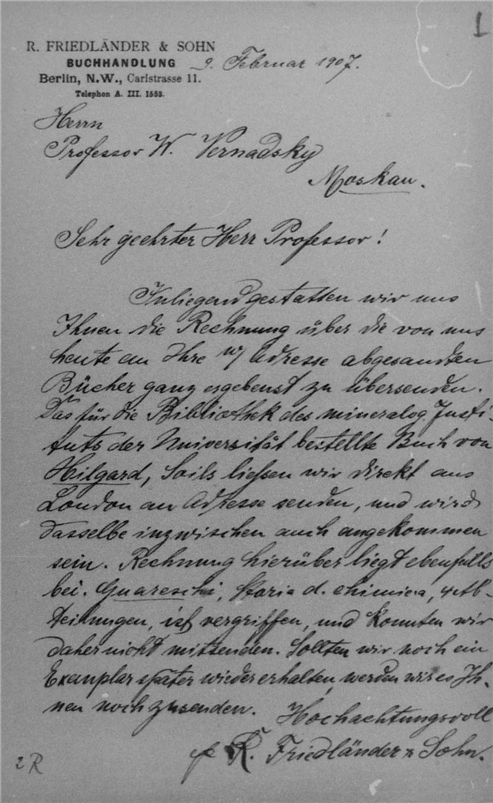 1
R. FRIEDLÄNDER & SOHN
BUCHHANDLUNG
Berlin, N.W., Carlstrasse 11.
Telephon A. III. 1553.
9. Februar 1907.
Herrn
Professor W. Vernadsky
Moskau.
Sehr geehrter Herr Professor!
Inliegend gestatten wir uns
Ihnen die Rechnung über die von uns
heute an Ihre w/ Adresse abgesandten
Bücher ganz ergebenst zu übersenden.
Das für die Bibliothek des mineralog Insti-
tuts der Universität bestellte Buch von
Hilgard, Soils ließen wir direkt aus
London an Adresse senden, und wird
dasselbe inzwischen auch angekommen
sein. Rechnung hierüber liegt ebenfalls
bei. Guareschi, Storia d. chimica, 4 Ab-
teilungen, ist vergriffen, und konnten wir
daher nicht mitsenden. Sollten wir noch ein
Exemplar später wieder erhalten, werden wir es Ih-
nen noch zusenden.
Hochachtungsvoll
R. Friedländer & Sohn.
2R